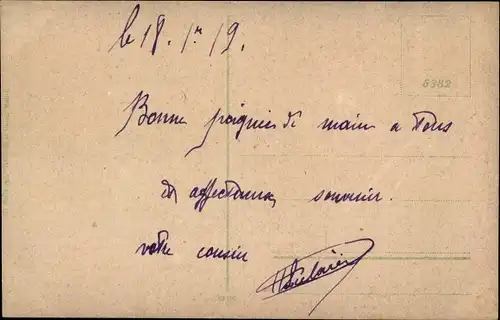 le 18. 1r 19.
5382
Bonne poignée de main a tous
et affectueux souvenir.
votre cousin